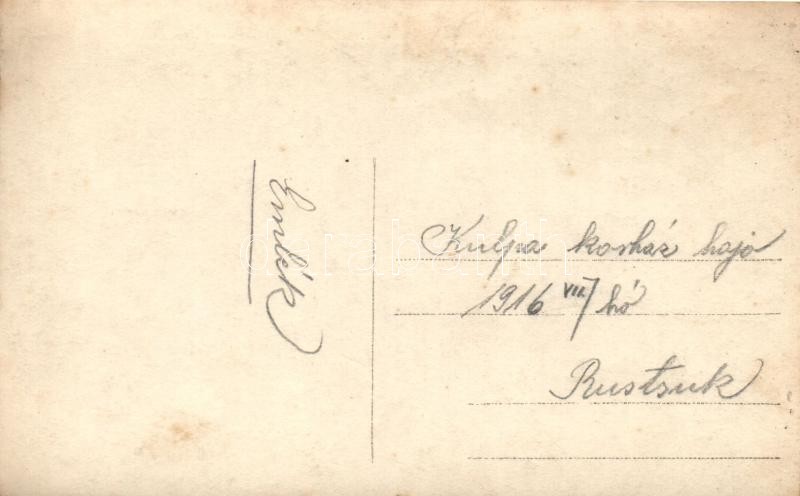 Emlék
Kulpa korház hajó
1916 VII/ hó
Rustsuk